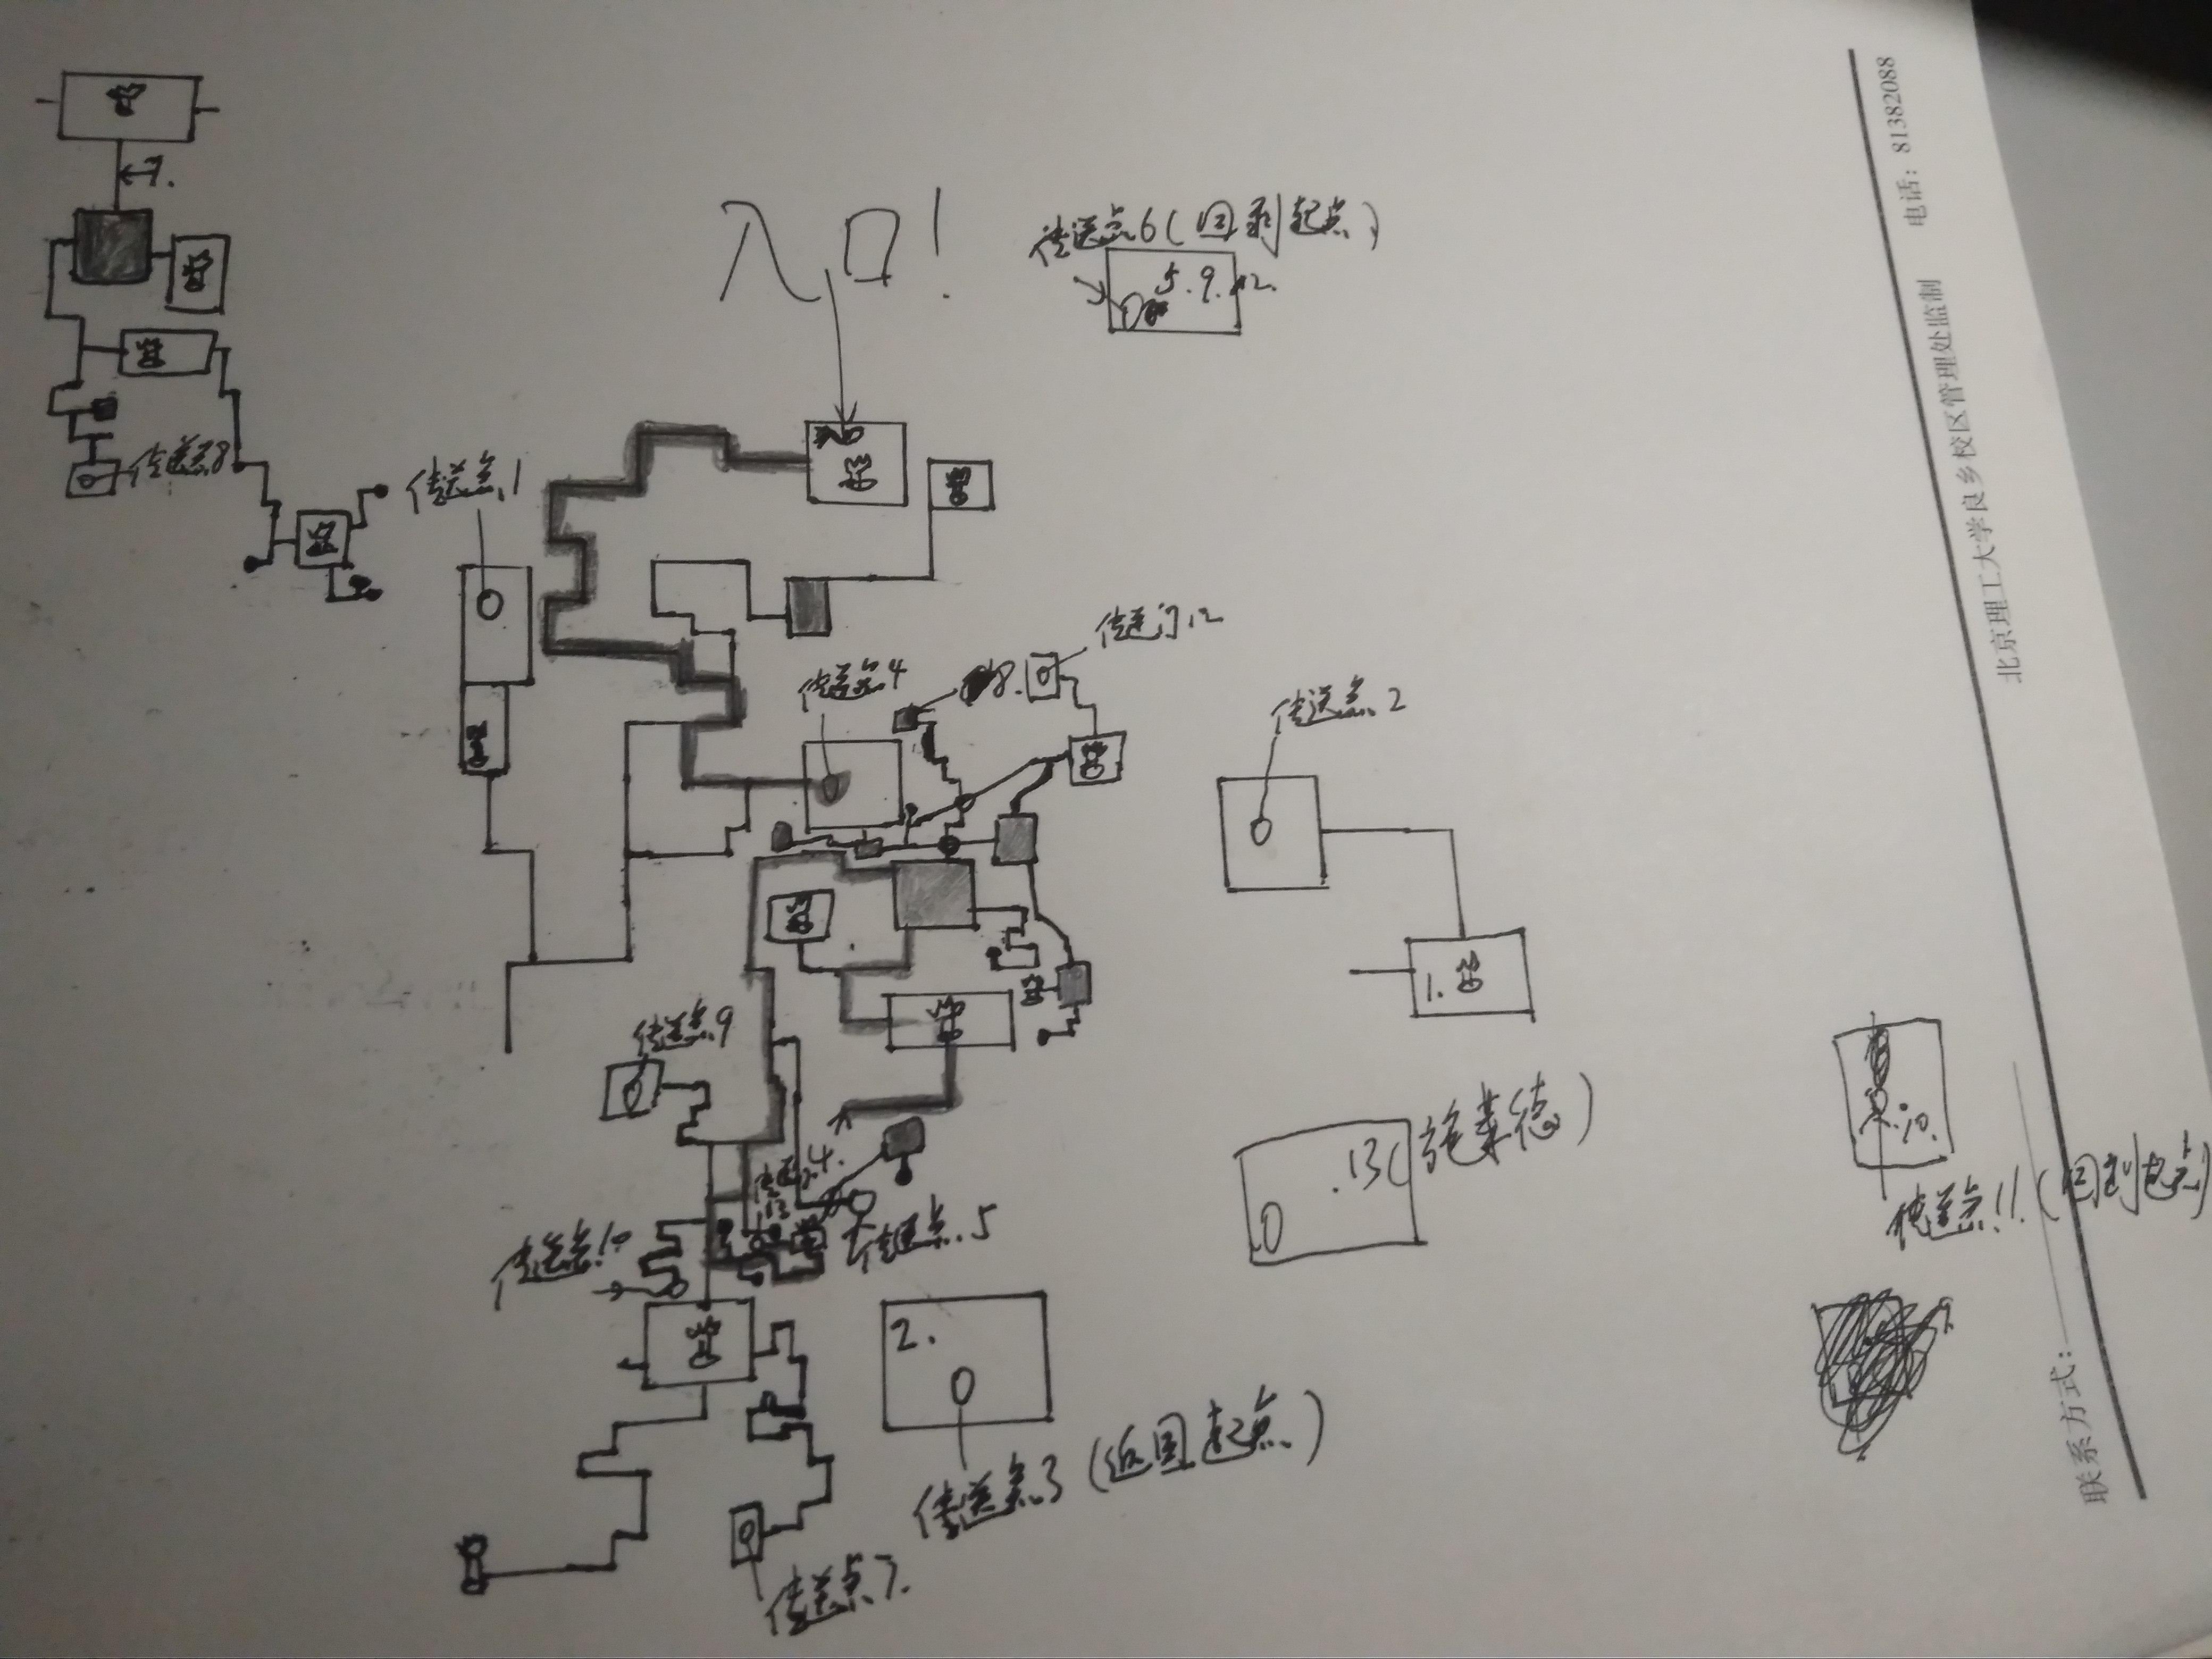 7.
入口!
传送点6(回到起点)
5.9.12.
传送点8
传送点1
传送门12
传送点4
8.
传送点2
1.
传送点9
.13(施莱德)
4.
10.
传送点5
传送点10
传送点11.(回到起点)
2.
传送点3(返回起点)
传送点7.
电话：81382088
北京理工大学良乡校区管理处监制
联系方式：